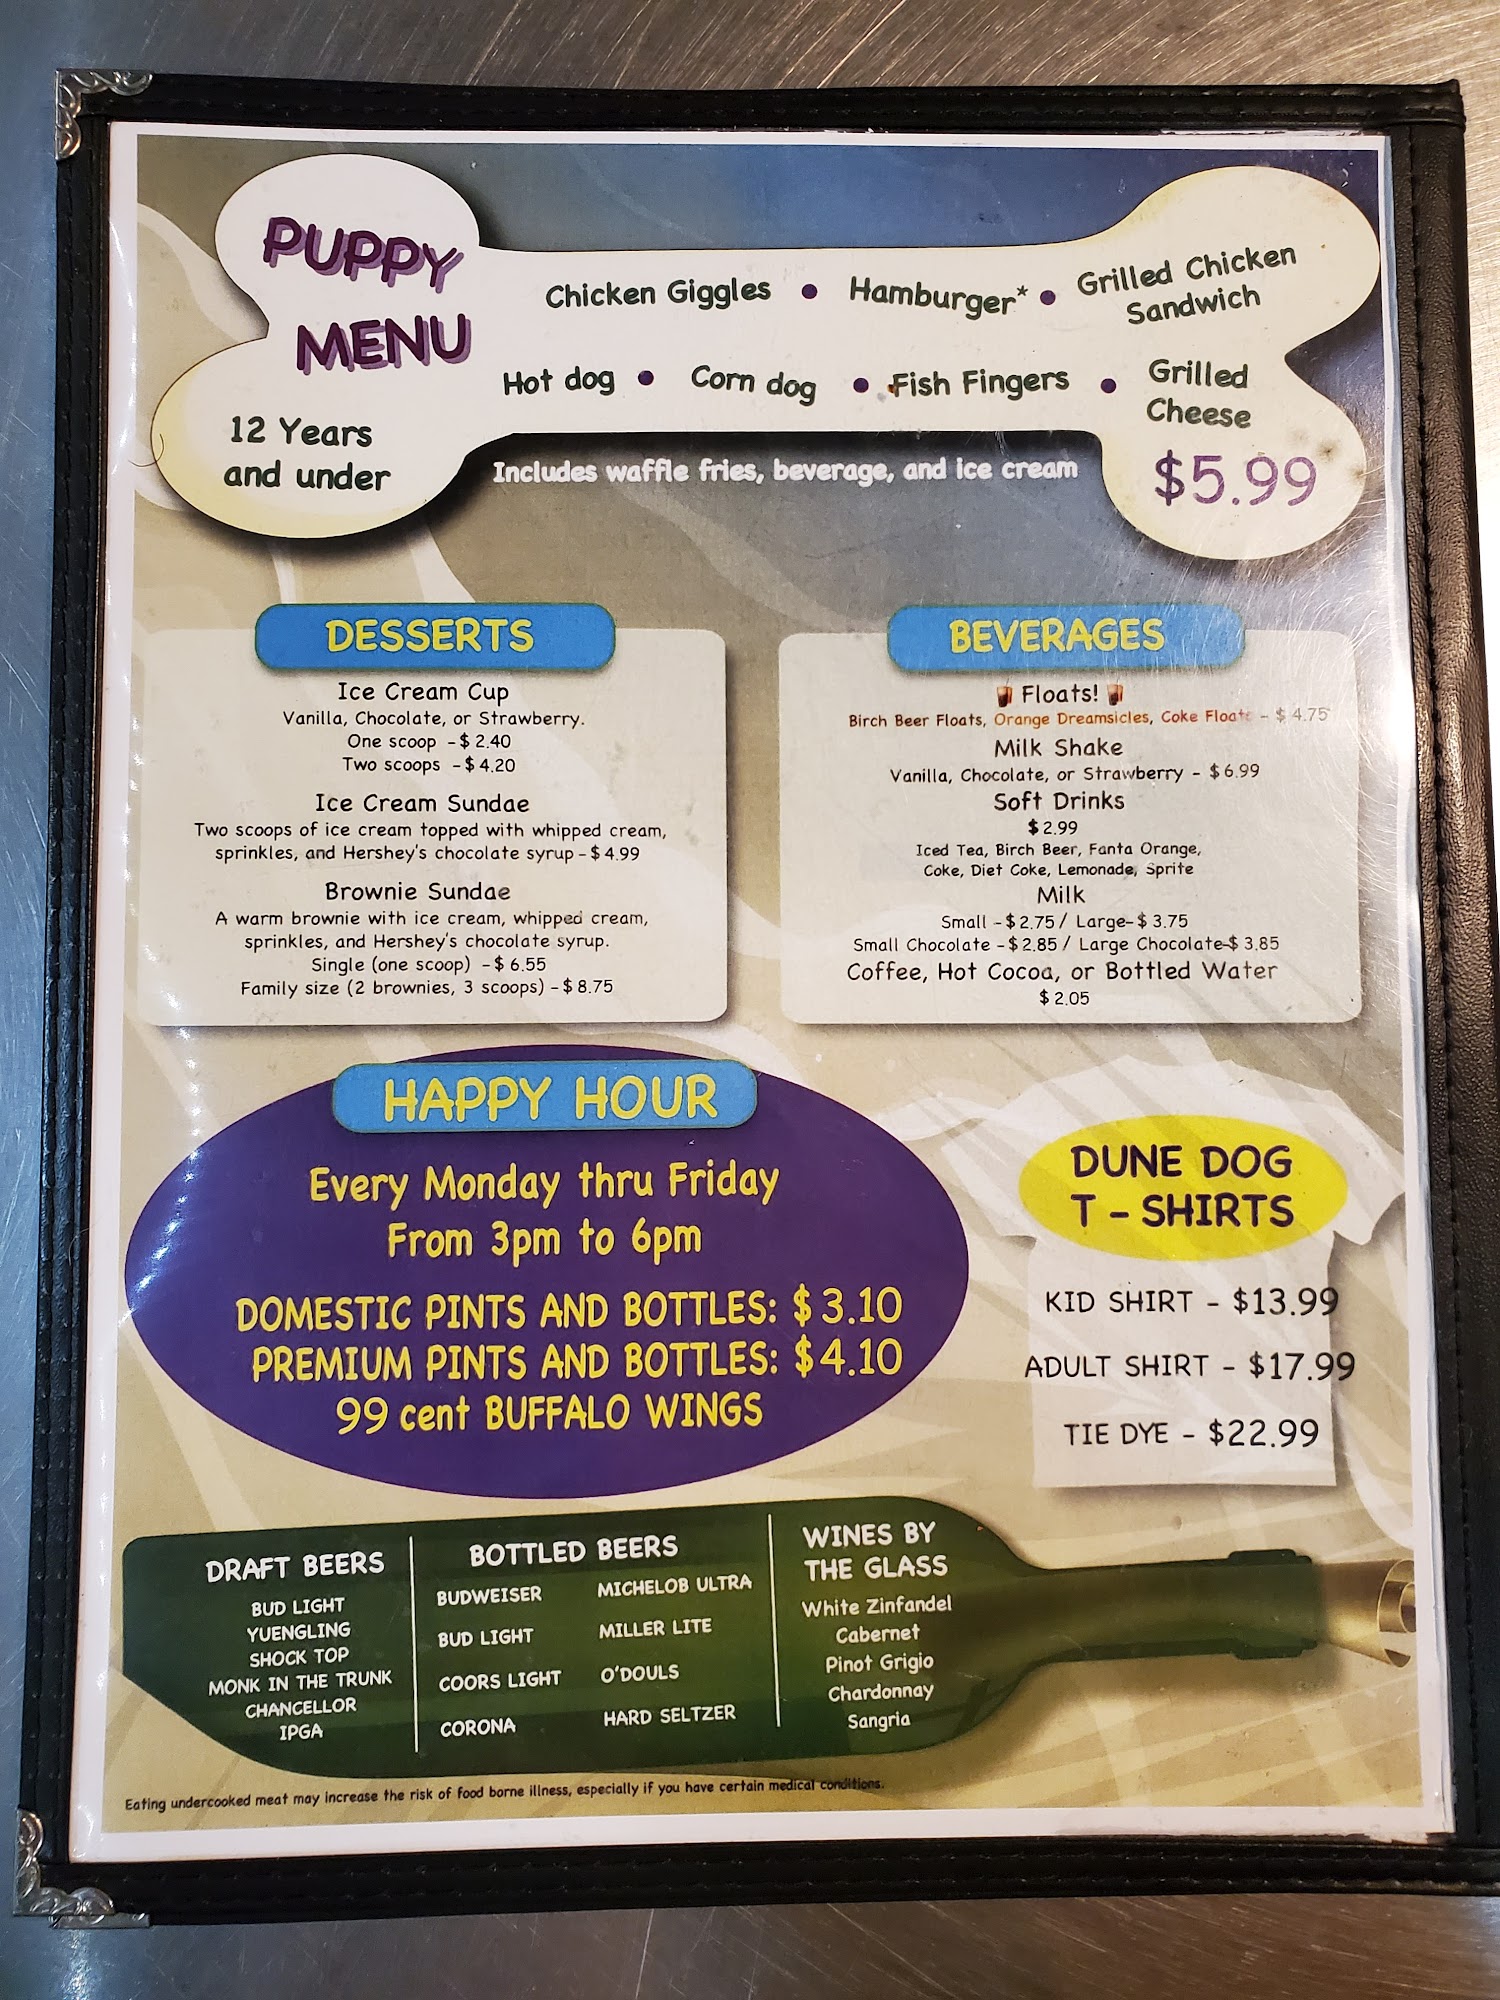 PUPPY
MENU
12 Years
and under
Chicken Giggles • Hamburger* • Grilled Chicken
Sandwich
Hot dog • Corn dog • Fish Fingers • Grilled
Cheese
Includes waffle fries, beverage, and ice cream
$5.99
DESSERTS
Ice Cream Cup
Vanilla, Chocolate, or Strawberry.
One scoop - $ 2.40
Two scoops - $ 4.20
Ice Cream Sundae
Two scoops of ice cream topped with whipped cream,
sprinkles, and Hershey's chocolate syrup - $ 4.99
Brownie Sundae
A warm brownie with ice cream, whipped cream,
sprinkles, and Hershey's chocolate syrup.
Single (one scoop) - $ 6.55
Family size (2 brownies, 3 scoops) - $ 8.75
BEVERAGES
Floats!
Birch Beer Floats, Orange Dreamsicles, Coke Floats - $ 4.75
Milk Shake
Vanilla, Chocolate, or Strawberry - $ 6.99
Soft Drinks
$ 2.99
Iced Tea, Birch Beer, Fanta Orange,
Coke, Diet Coke, Lemonade, Sprite
Milk
Small - $ 2.75 / Large- $ 3.75
Small Chocolate - $ 2.85 / Large Chocolate-$ 3.85
Coffee, Hot Cocoa, or Bottled Water
$ 2.05
HAPPY HOUR
Every Monday thru Friday
From 3pm to 6pm
DOMESTIC PINTS AND BOTTLES: $ 3.10
PREMIUM PINTS AND BOTTLES: $ 4.10
99 cent BUFFALO WINGS
DUNE DOG
T - SHIRTS
KID SHIRT - $13.99
ADULT SHIRT - $17.99
TIE DYE - $22.99
DRAFT BEERS
BUD LIGHT
YUENGLING
SHOCK TOP
MONK IN THE TRUNK
CHANCELLOR
IPGA
BOTTLED BEERS
BUDWEISER
BUD LIGHT
COORS LIGHT
CORONA
MICHELOB ULTRA
MILLER LITE
O'DOULS
HARD SELTZER
WINES BY
THE GLASS
White Zinfandel
Cabernet
Pinot Grigio
Chardonnay
Sangria
Eating undercooked meat may increase the risk of food borne illness, especially if you have certain medical conditions.